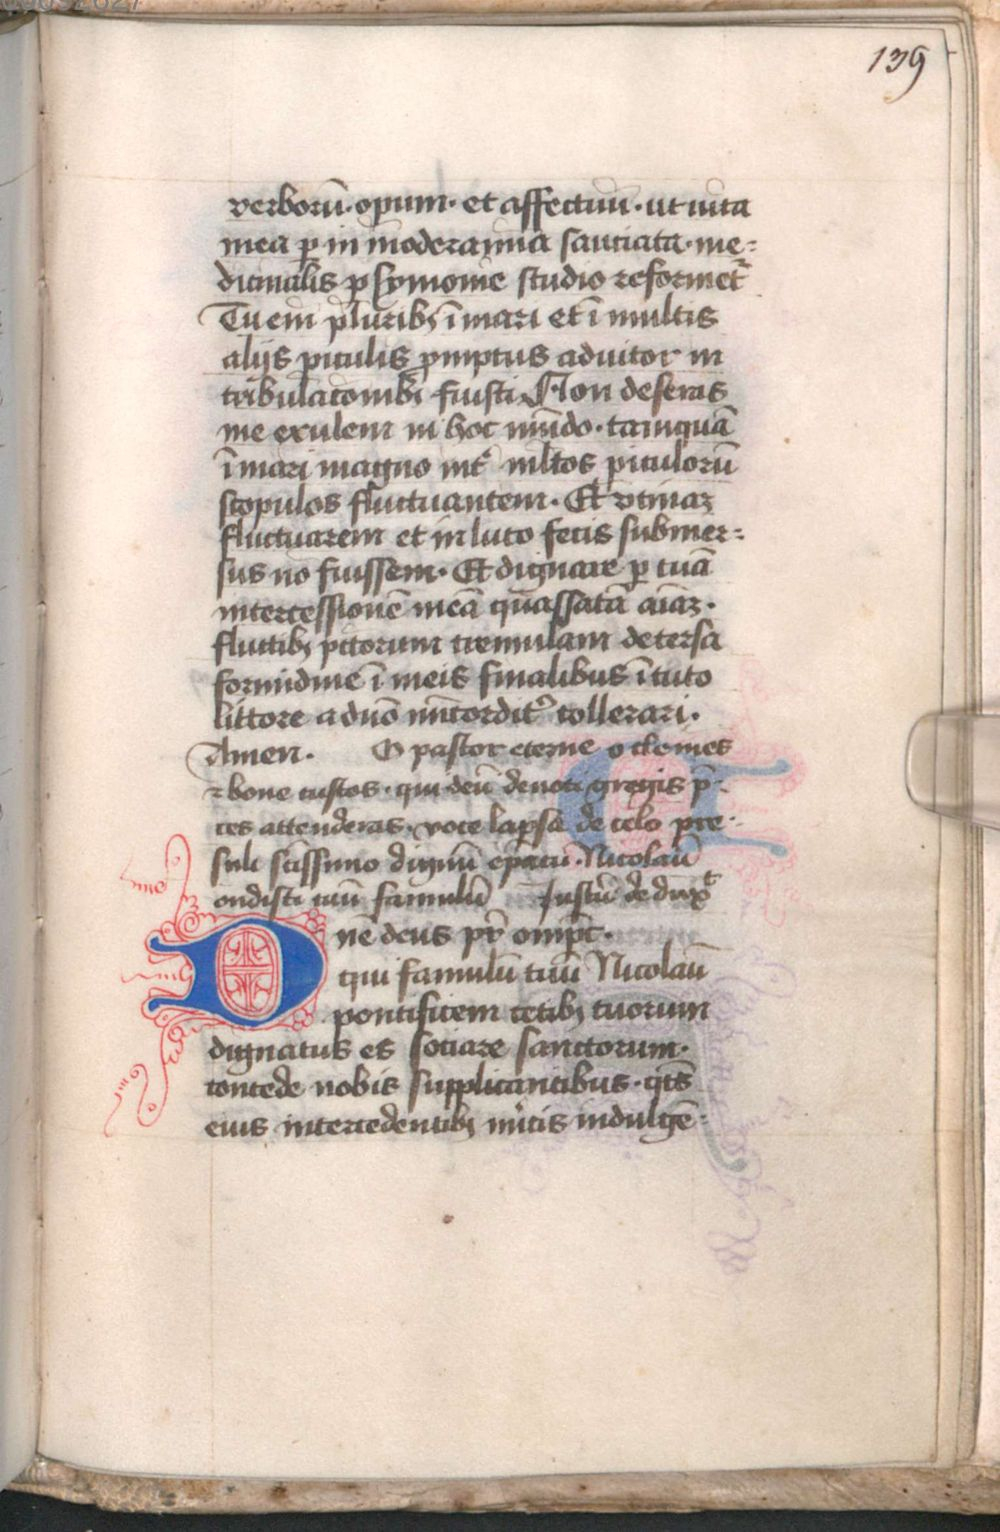 139
verborū· opum· et affectuū· ut uita
mea p in moderamina sauciata· me=
dicinalis p symonie studio reformet᷑
Tu em̄ pluribꝫ ī mari et ī multis
alijs piculis promptus adiutor in
tribulatōnibꝫ fuisti Non deseras
me exulem in hoc mūdo· tamquā
ī mari magno int̄ mltos piculorū
scopulos fluctuantem· Et vtinaꝫ
fluctuarem et in luto fecis submer=
sus nō fuissem· Et dignare p tuā
intercessionē meā quassatā aīaꝫ·
fluctibꝫ pctorum tremulam detersa
formidine ī meis finalibus ī tuto
littore a dnō mīcordit᷑ collerari·
Amen· O pastor eterne o clemēs
⁊ bone custos· qui dcū devoti gregis p̄=
ces attenderas· voce lapsa de celo pre=
suli sc̄issimo dignū epatū Nicolaū
ondisti tuū famulū Justū dedux̄
Dn̄e deus pr̄ omp̄c·
qui famulū tuū Nicolaū
pontificem cetibꝫ tuorum
dignatus es sociare sanctorum·
concede nobis supplicantibus· qts̄
eius intercedentibꝫ m̄itis indulgē=